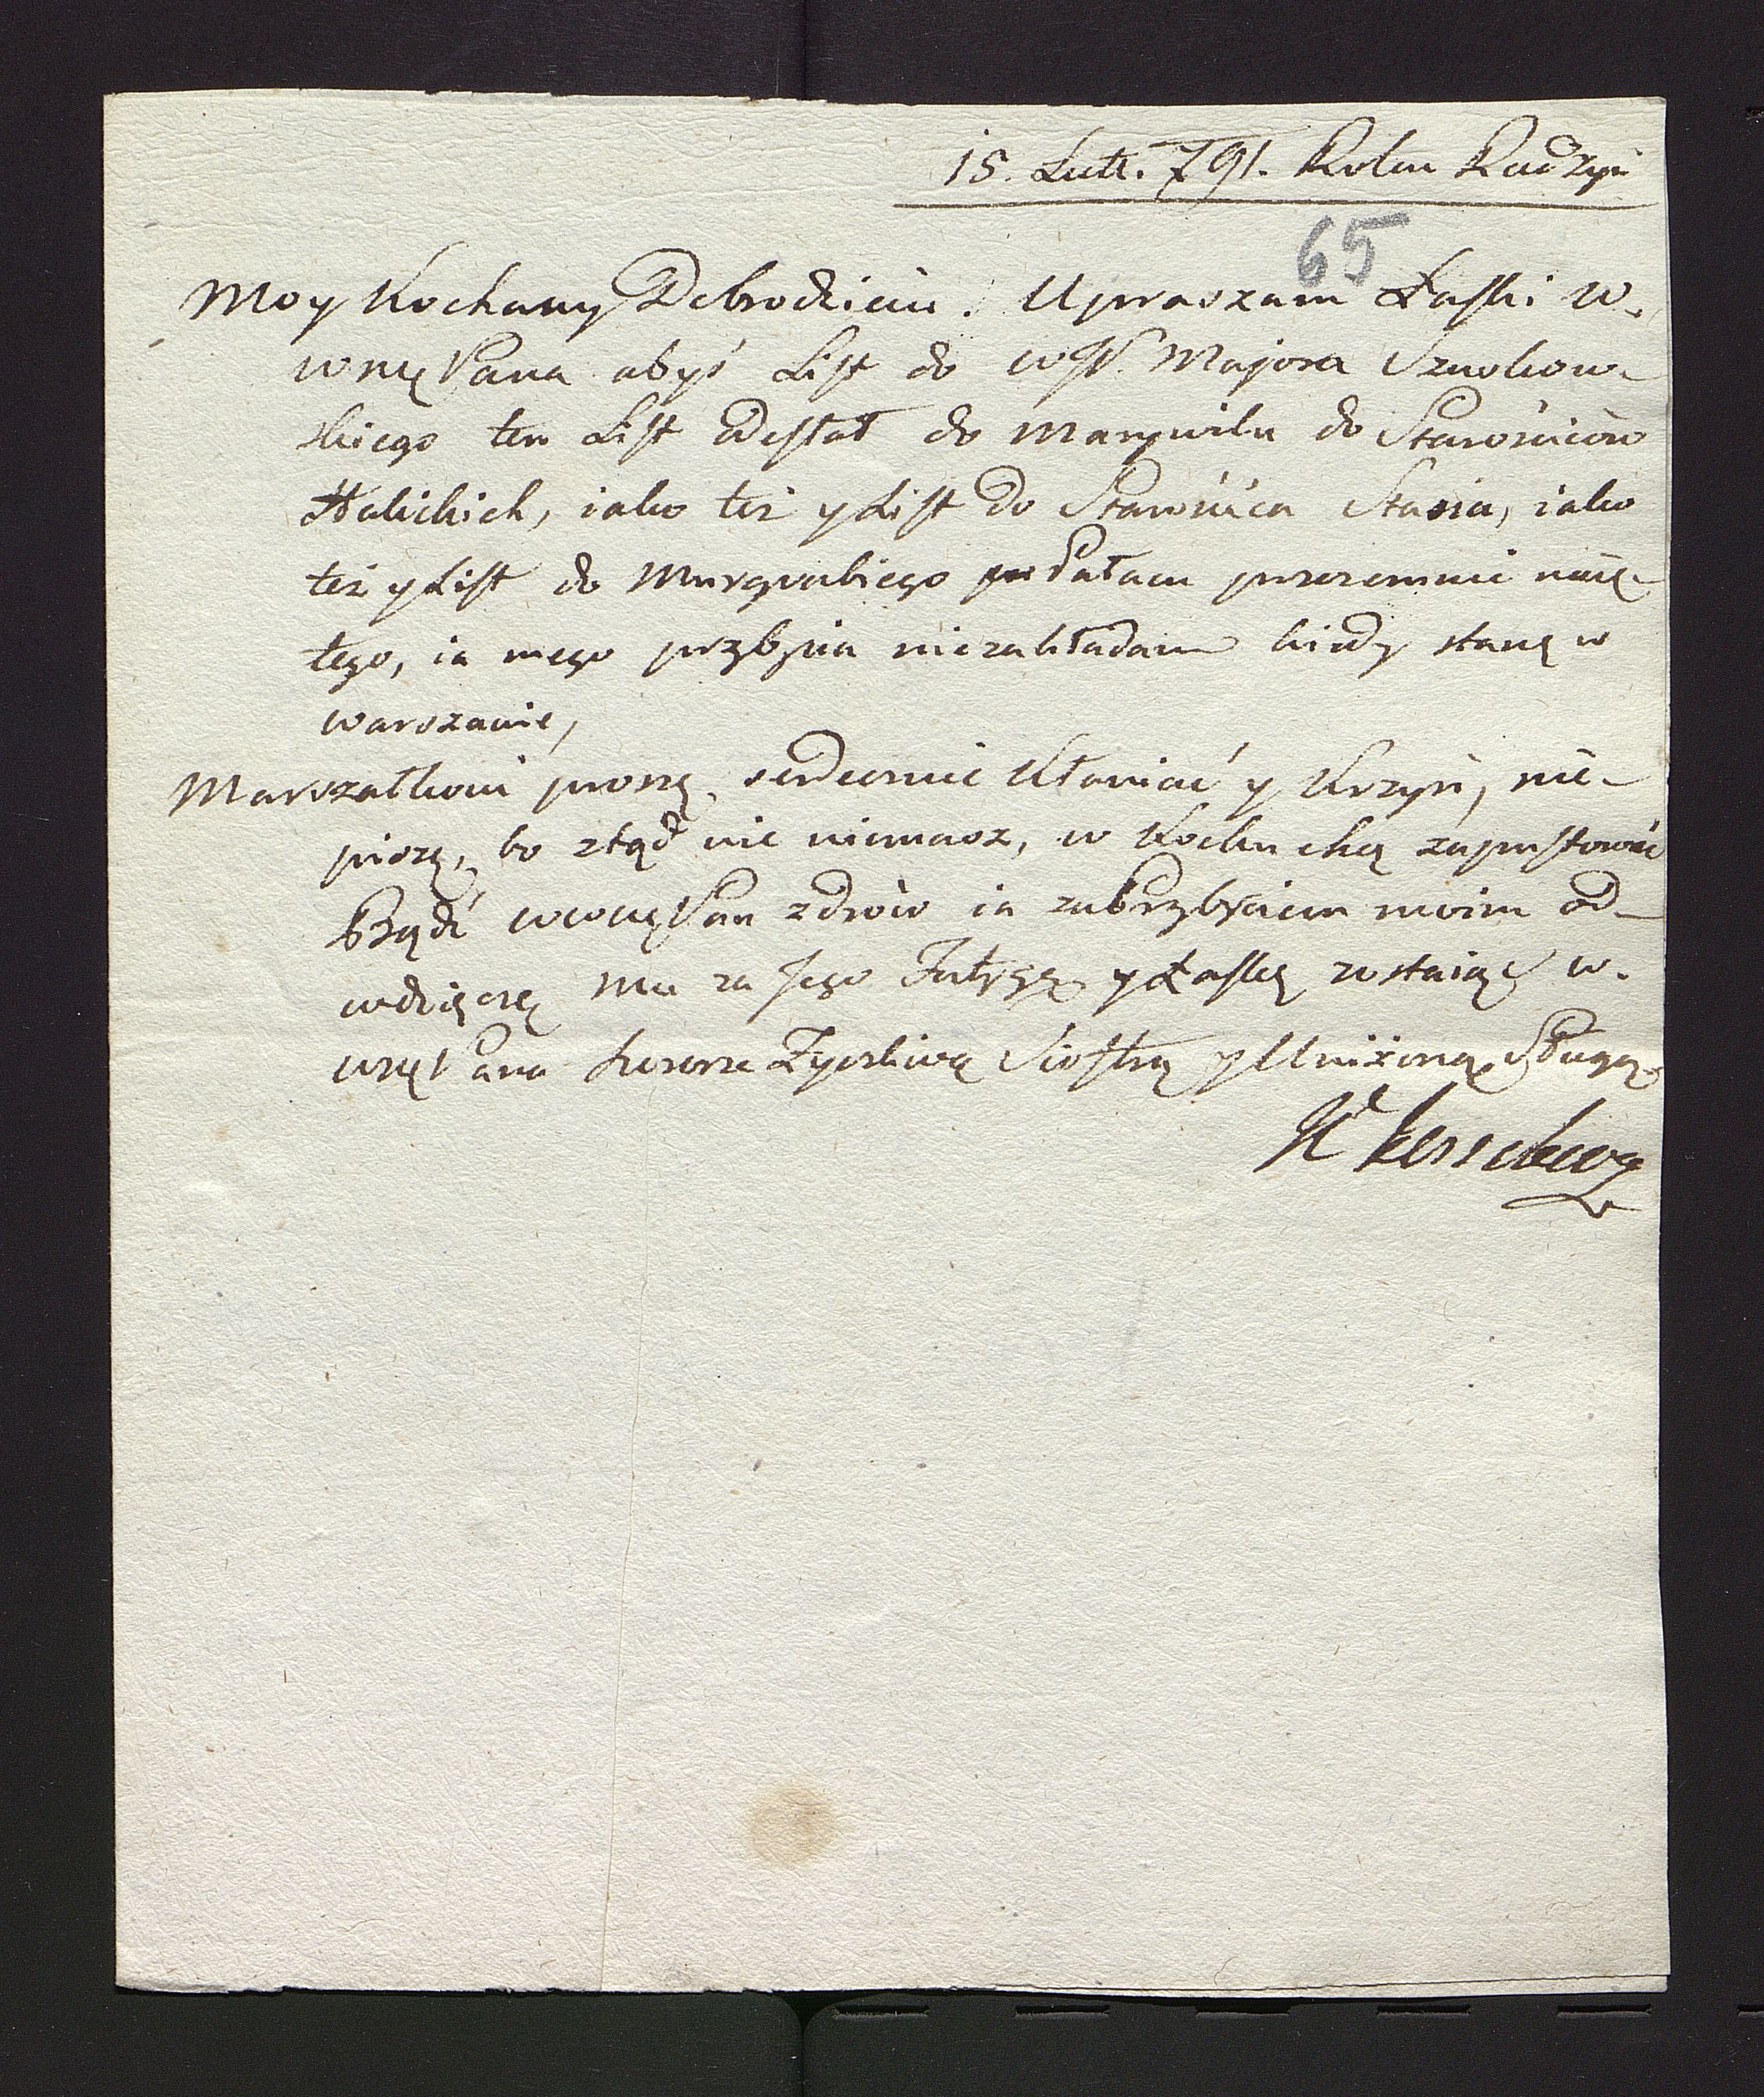 15. Lutt. 791. Roku Radzyń
65
Moy Kochany Dobrodzieiu. Upraszam Łaski W.
WMę Pana abyś List do WJP. Majora Sznukow-
skiego ten List odesłał do Marywilu do Starościców
Halickich, iako też y List do Starościca Stasia, iako
też y List do Murgrabiego Pałacu przezemnie naię-
tego, ia mego przybycia niezakładam kiedy stanę w
Warszawie,
Marszałkowi proszę serdecznie kłaniać y Krzysi, nie-
piszę, bo ztąd nic niemasz, w Kocku chcę zapustować
Bądź WWMę Pan zdrów ia za Przybyciem moim od-
wdzięczę mu za Jego Fatygę y Łaskę zostaiąc W.
WMę Pana szczerze Życzliwą Siostrą y Uniżoną Sługą